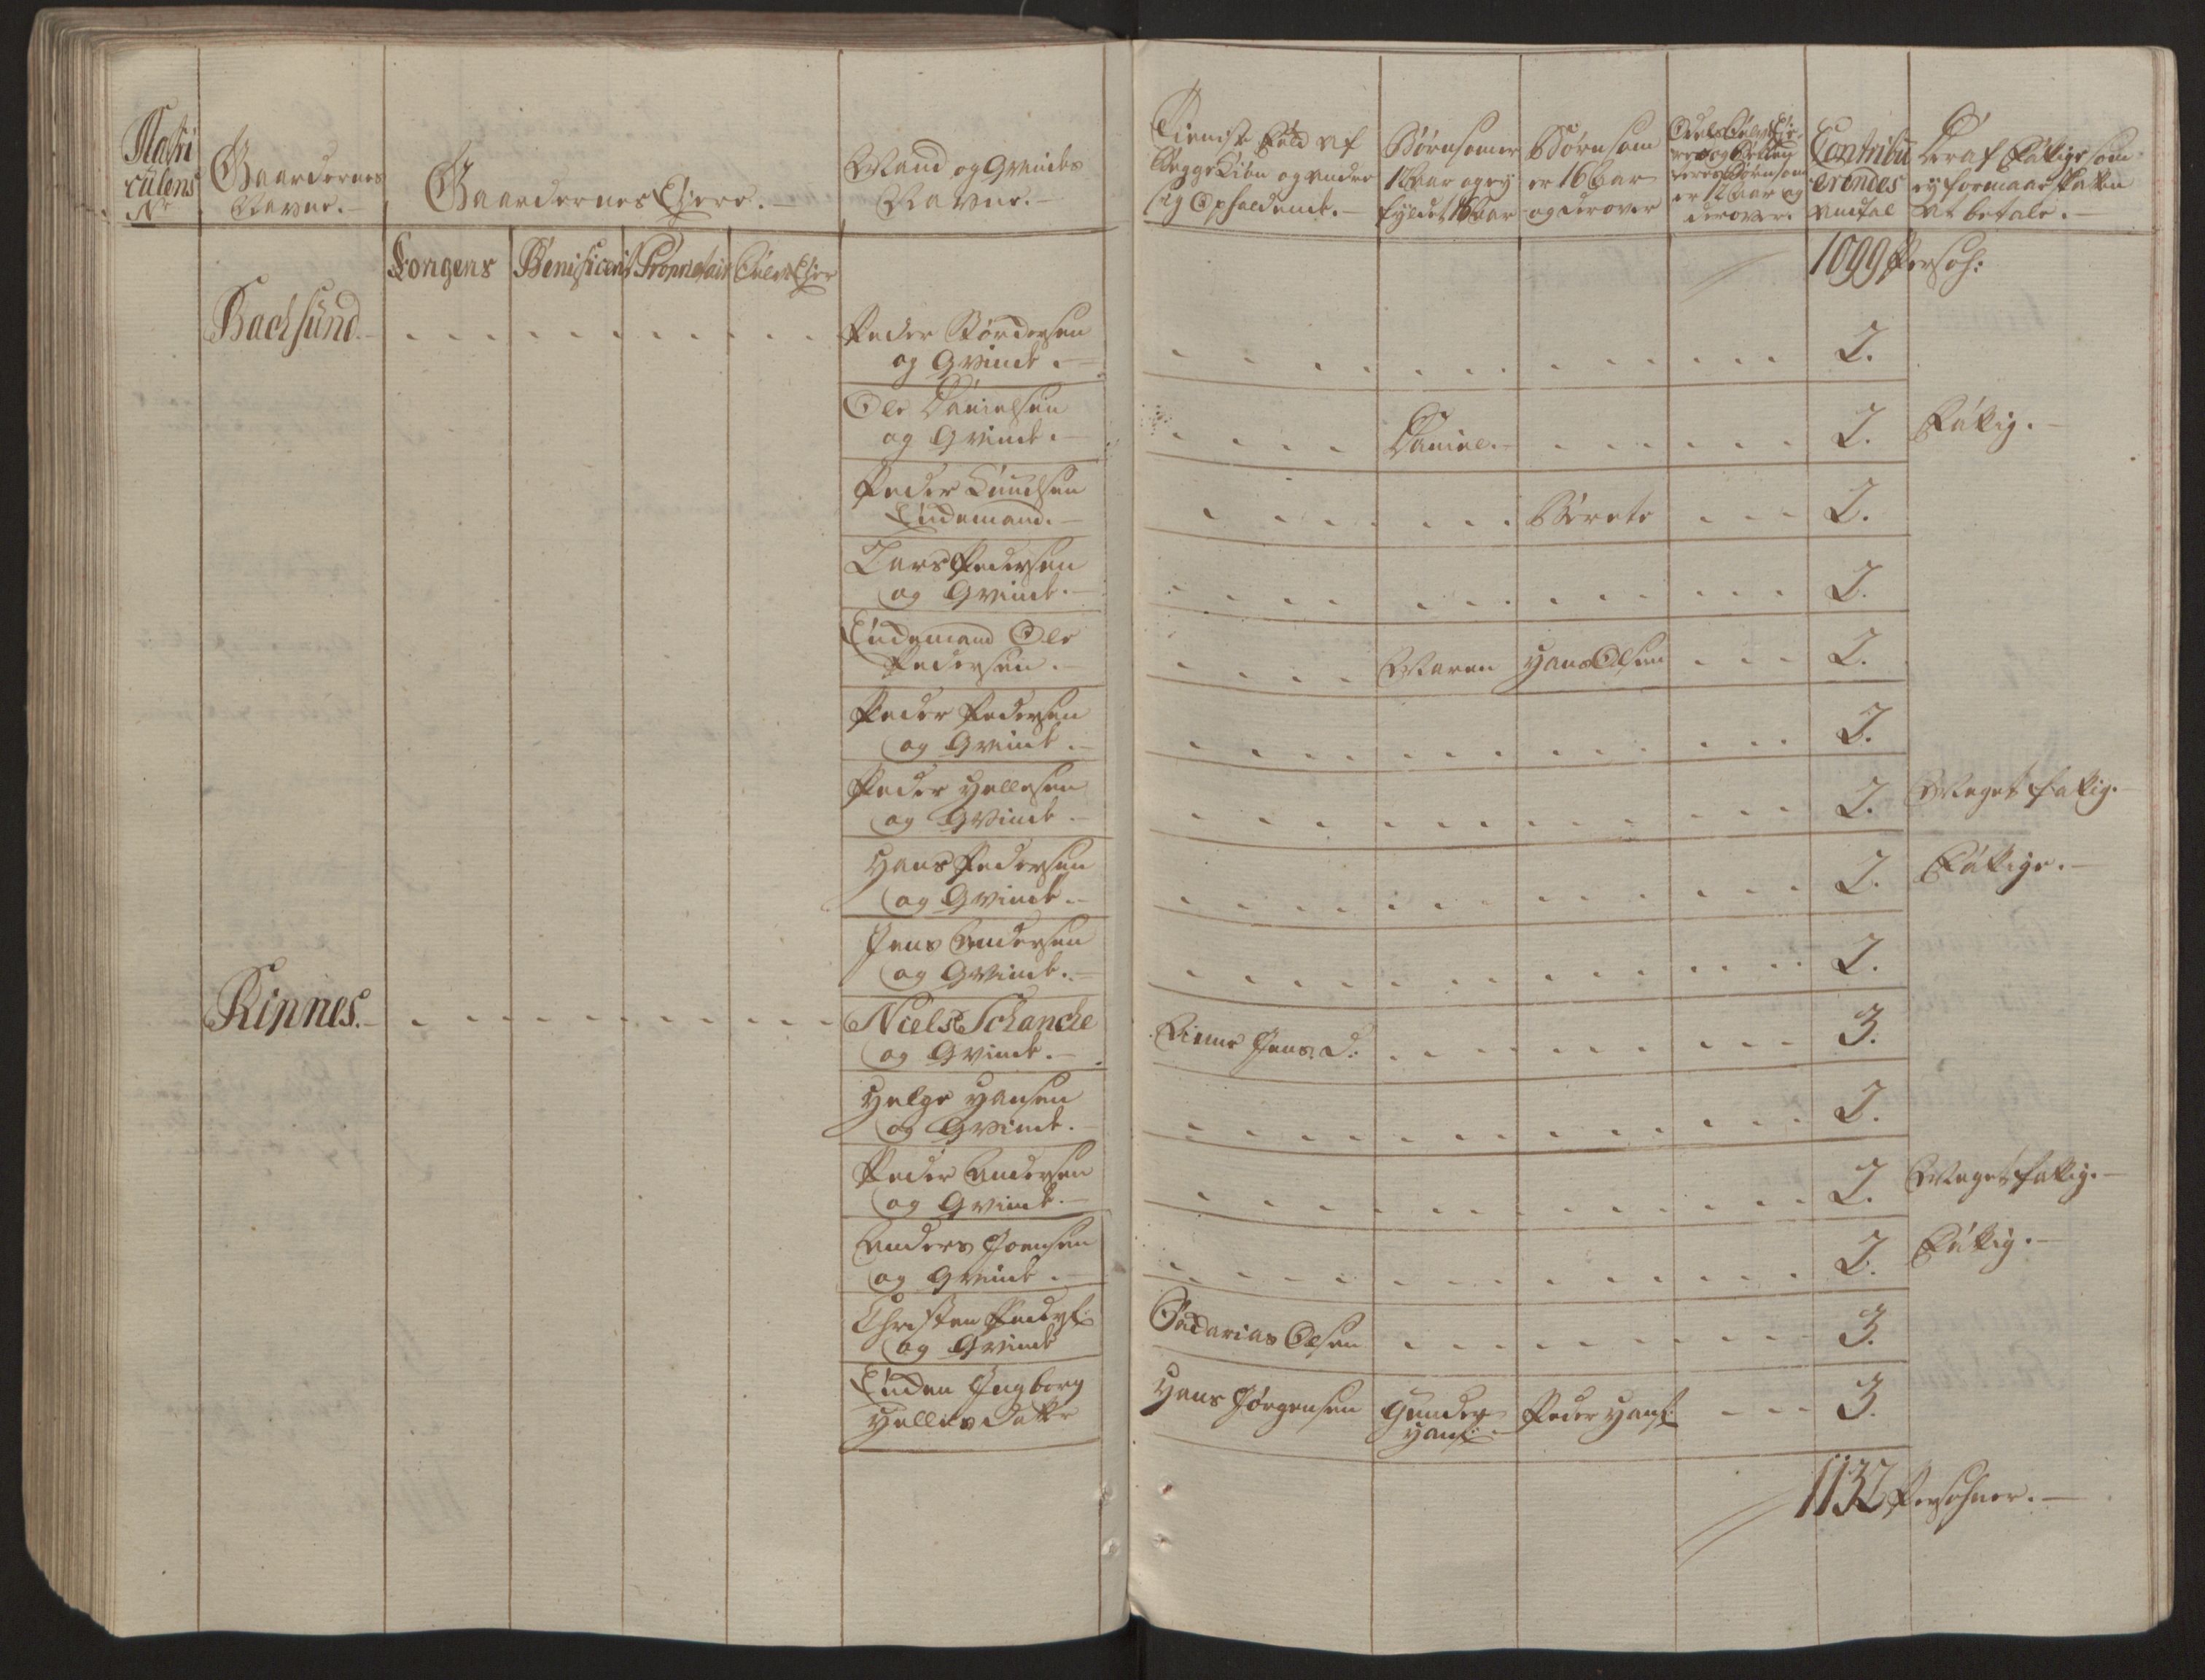 Matri
culens
Nr
Gaardernes
Navne.
Gaardernes Ejere.
Mand og Qvindes
Navne.
Tieniste Folk af
Begge Kiøn og andre
sig Opholdende.
Børn som er
12 Aar og ej
fyldt 16 Aar
Børn som
er 16 Aar
og derover
er 12 Aar og
derover.
Contribu
erendes
Antal
Deraf Fattige som
ej formaar Skatten
at betale.
Kongens
Benificeret
Proprietair
Selv Ejer
1099 Persoh:
Bachsund.
Peder
og Qvinde.
2.
Ole Danielsen
og Qvinde.
Daniel.
2.
Fattig.
Peder Knudsen
Enkemand.
Berete
2.
Lars Pedersen
og Qvinde.
2.
Enkemand Ole
Pedersen.
Maren
Hans Olsen
2.
Peder Pedersen
og Qvinde.
2.
Peder Hellesen
og Qvinde.
2.
Meget fattig.
Hans Pedersen
og Qvinde.
2.
Fattige.
Jens Andersen
og Qvinde.
2.
Rinnes.
Niels Schanche
og Qvinde.
Jens. D:
3.
Helge Hansen
og Qvinde.
2.
Peder Andersen
og Qvinde.
2.
Meget fattig.
Anders Joensen
og Qvinde.
2.
Fattig.
Christen Peders:
og Qvinde
Zacharias Olsen
3.
Enken Ingborg
Helles Datter
Hans Jørgensen
Gunder
Hans:
Peder Hans:
3.
1132 Persohner.